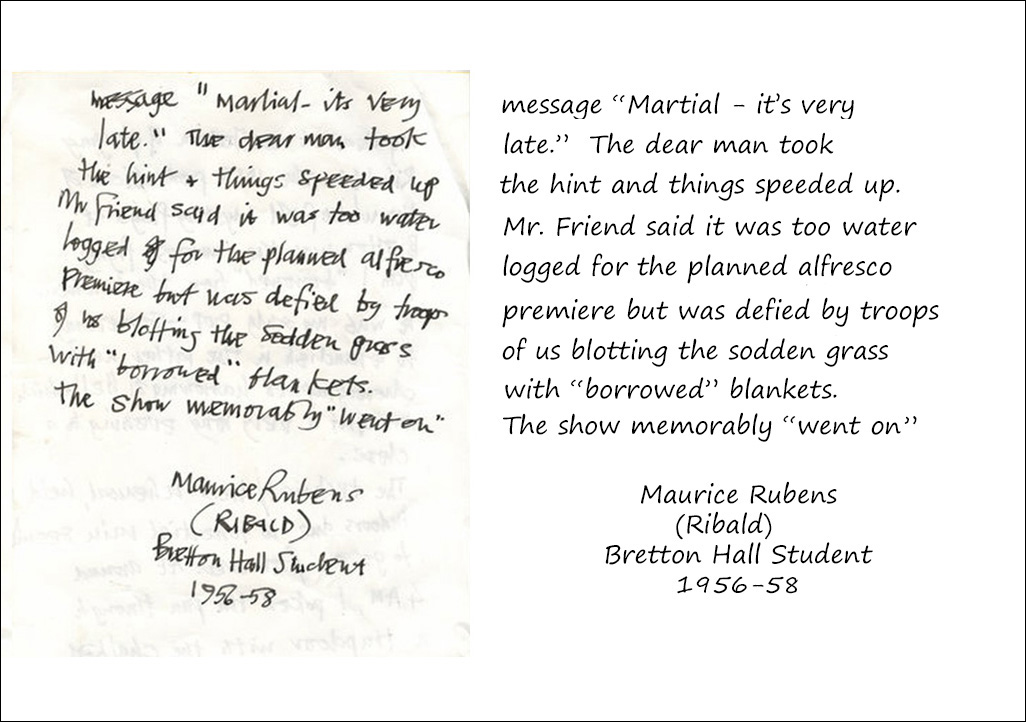 message "Martial - its very
late." The dear man took
the hint & things speeded up
Mr Friend said it was too water
logged for the planned alfresco
Premiere but was defied by troops
of us blotting the sodden grass
with "borrowed" blankets.
The show memorably "went on"
Maurice Rubens
(RIBALD)
Bretton Hall Student
1956-58
message “Martial - it’s very
late.” The dear man took
the hint and things speeded up.
Mr. Friend said it was too water
logged for the planned alfresco
premiere but was defied by troops
of us blotting the sodden grass
with “borrowed” blankets.
The show memorably “went on”
Maurice Rubens
(Ribald)
Bretton Hall Student
1956-58